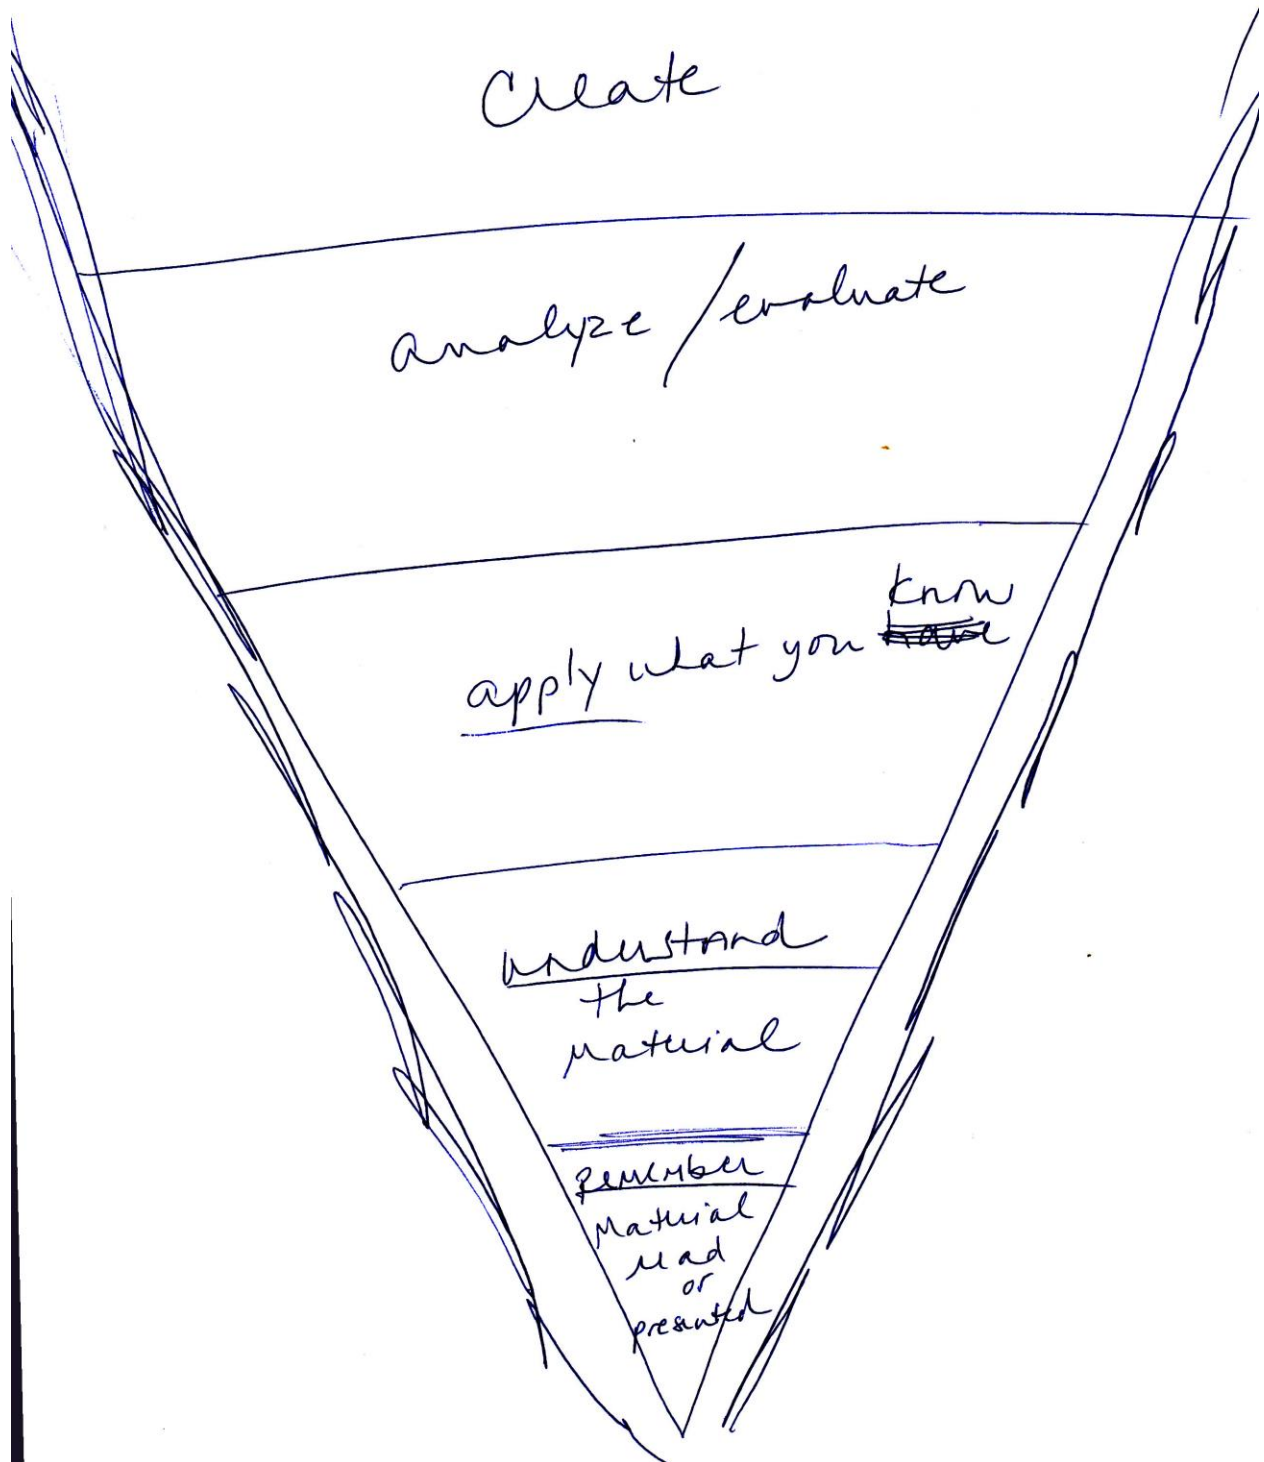 Create
analyze / evaluate
know
apply what you have
understand
the
Material
Remember
Material
read
or
presented